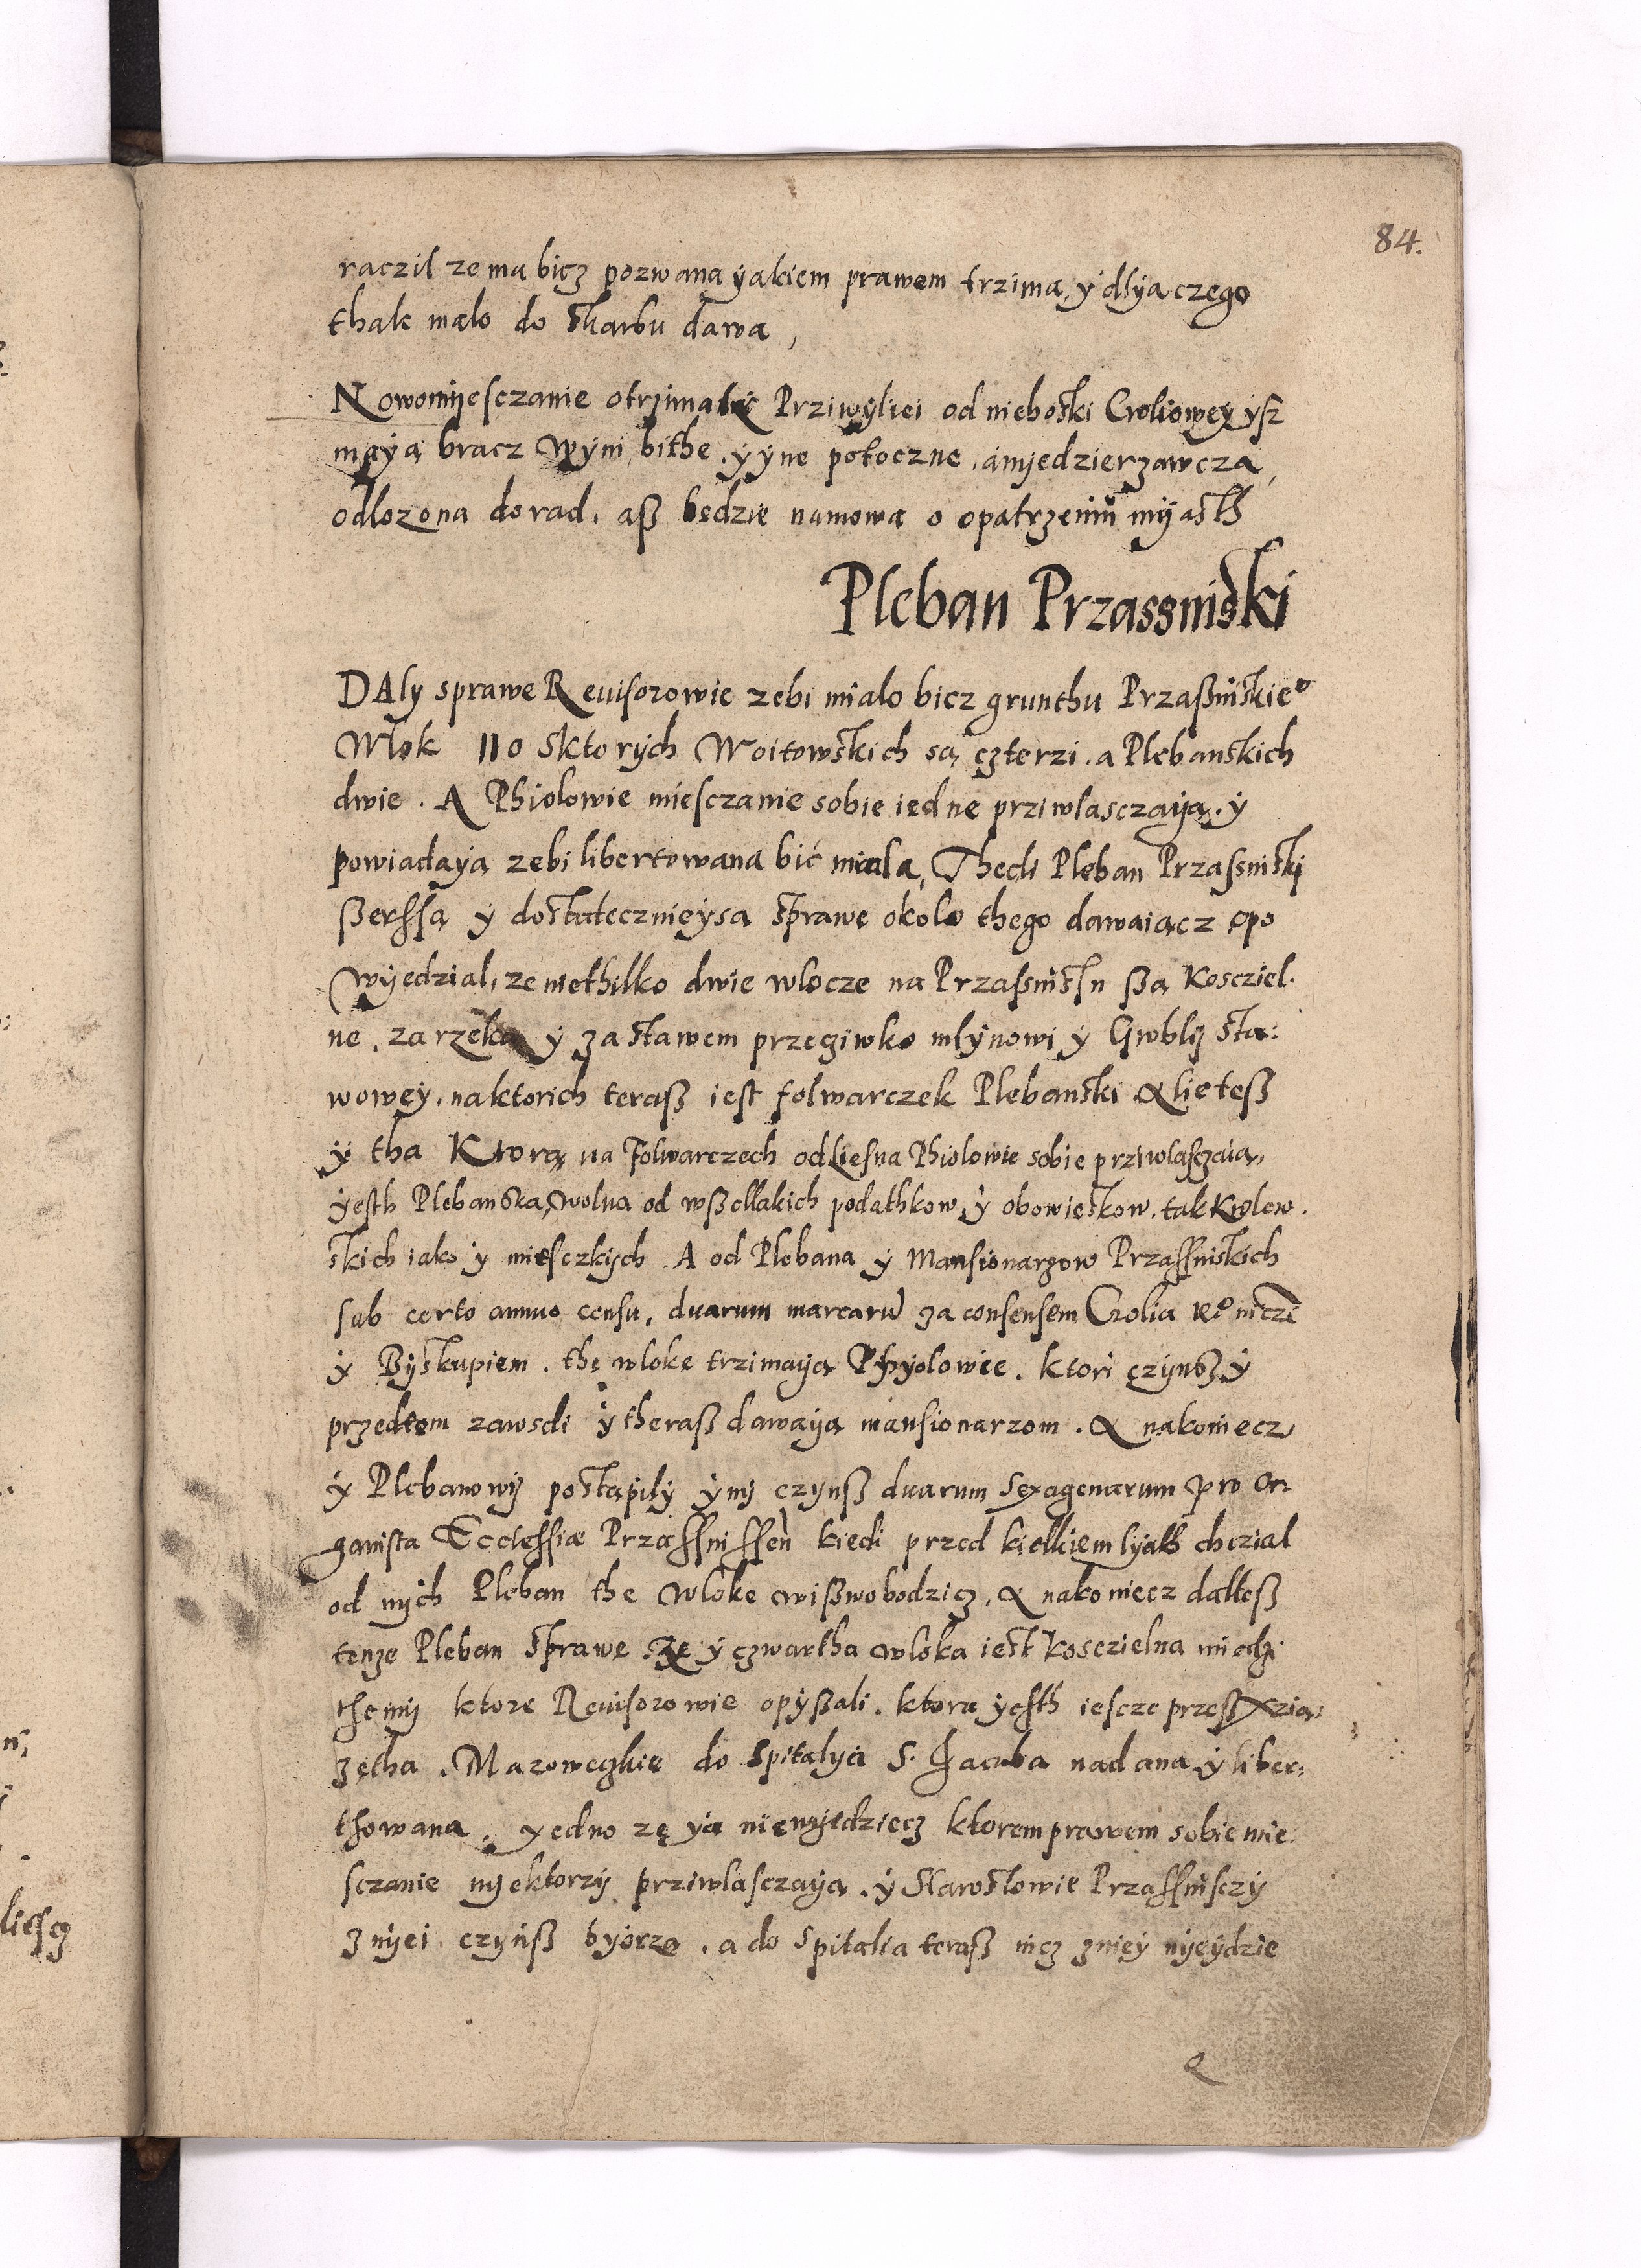 84.
raczil ze ma bicz pozwana yakiem prawem trzima, y dlya czego
thak malo do skarbu dawa,
Nowomyesczanie otrzimali Prziwyliei od nieboski Croliowey ysz
maya bracz wyni bithe. y yne potoczne. a niedzierzawcza,
odlozona do rad. asz bedzie namowa o opatrzeniu myasth
Pleban Przassniski
DAly sprawe Reuisorowie zebi mialo bicz grunthu Przaßniskieo
Wlok 110 sktorych Woitowskich sa czterzi. a Plebanskich
dwie. A Phiolowie miesczanie sobie iedne prziwlasczaya. y
powiadaya zebi libertowana bić miala, Thedi Pleban Przassniski
ßerssa y dostatecznieysa sprawe okolo thego dawaiacz opo
wyedzial, ze niethilko dwie wlocze na Przassnisku ßa Kosciel.
ne. za rzeka y za stawem przeciwko mlynowi y Grobly sta:
wowey. na ktorich teraß iest folwarczek Plebanski Alie teß
y tha Ktora na Folwarczech od Liesna Phiolowie sobie prziwlasczaia,
yesth Plebanska, wolna od wßellakich podathkow y obowieskow. tak Krolew.
skich iako y miesczkych. A od Plebana y Mansionarzow Przassniskich
sub certo annuo censu. duarum marcaru za consensem Crolia Ie° mczi
y Byskupiem. the wloke trzimaya Phyolowie. ktori czynsz y
przedtem zawsdi y theraß dawaya mansionarzom. A nakoniecz
y Plebanowy postapily ymi czynß duarum sexagenarum pro or-
ganista Ecclessiæ Przassnissen kiedi przed kielkiem lyath chcial
od nych Pleban the wloke wißwobodzicz. A nakoniecz dal teß
tenze Pleban sprawe ze y czwartha wloka iest koscielna miedzi
themy ktore Reuisorowie opyßali. ktora yesth iescze przeß Xzia:
zetha. Mazoweczkie do Spitalya S. Jacuba nadana y liber,
thowana. yedno ze ya niewyedziecz ktorem prawem sobie mie:
sczanie nyektorzy prziwlasczaya. y Starostowie Przassnisczy
z nyei czynß byorze. a do Spitalia teraß nicz zniey nyeydzie